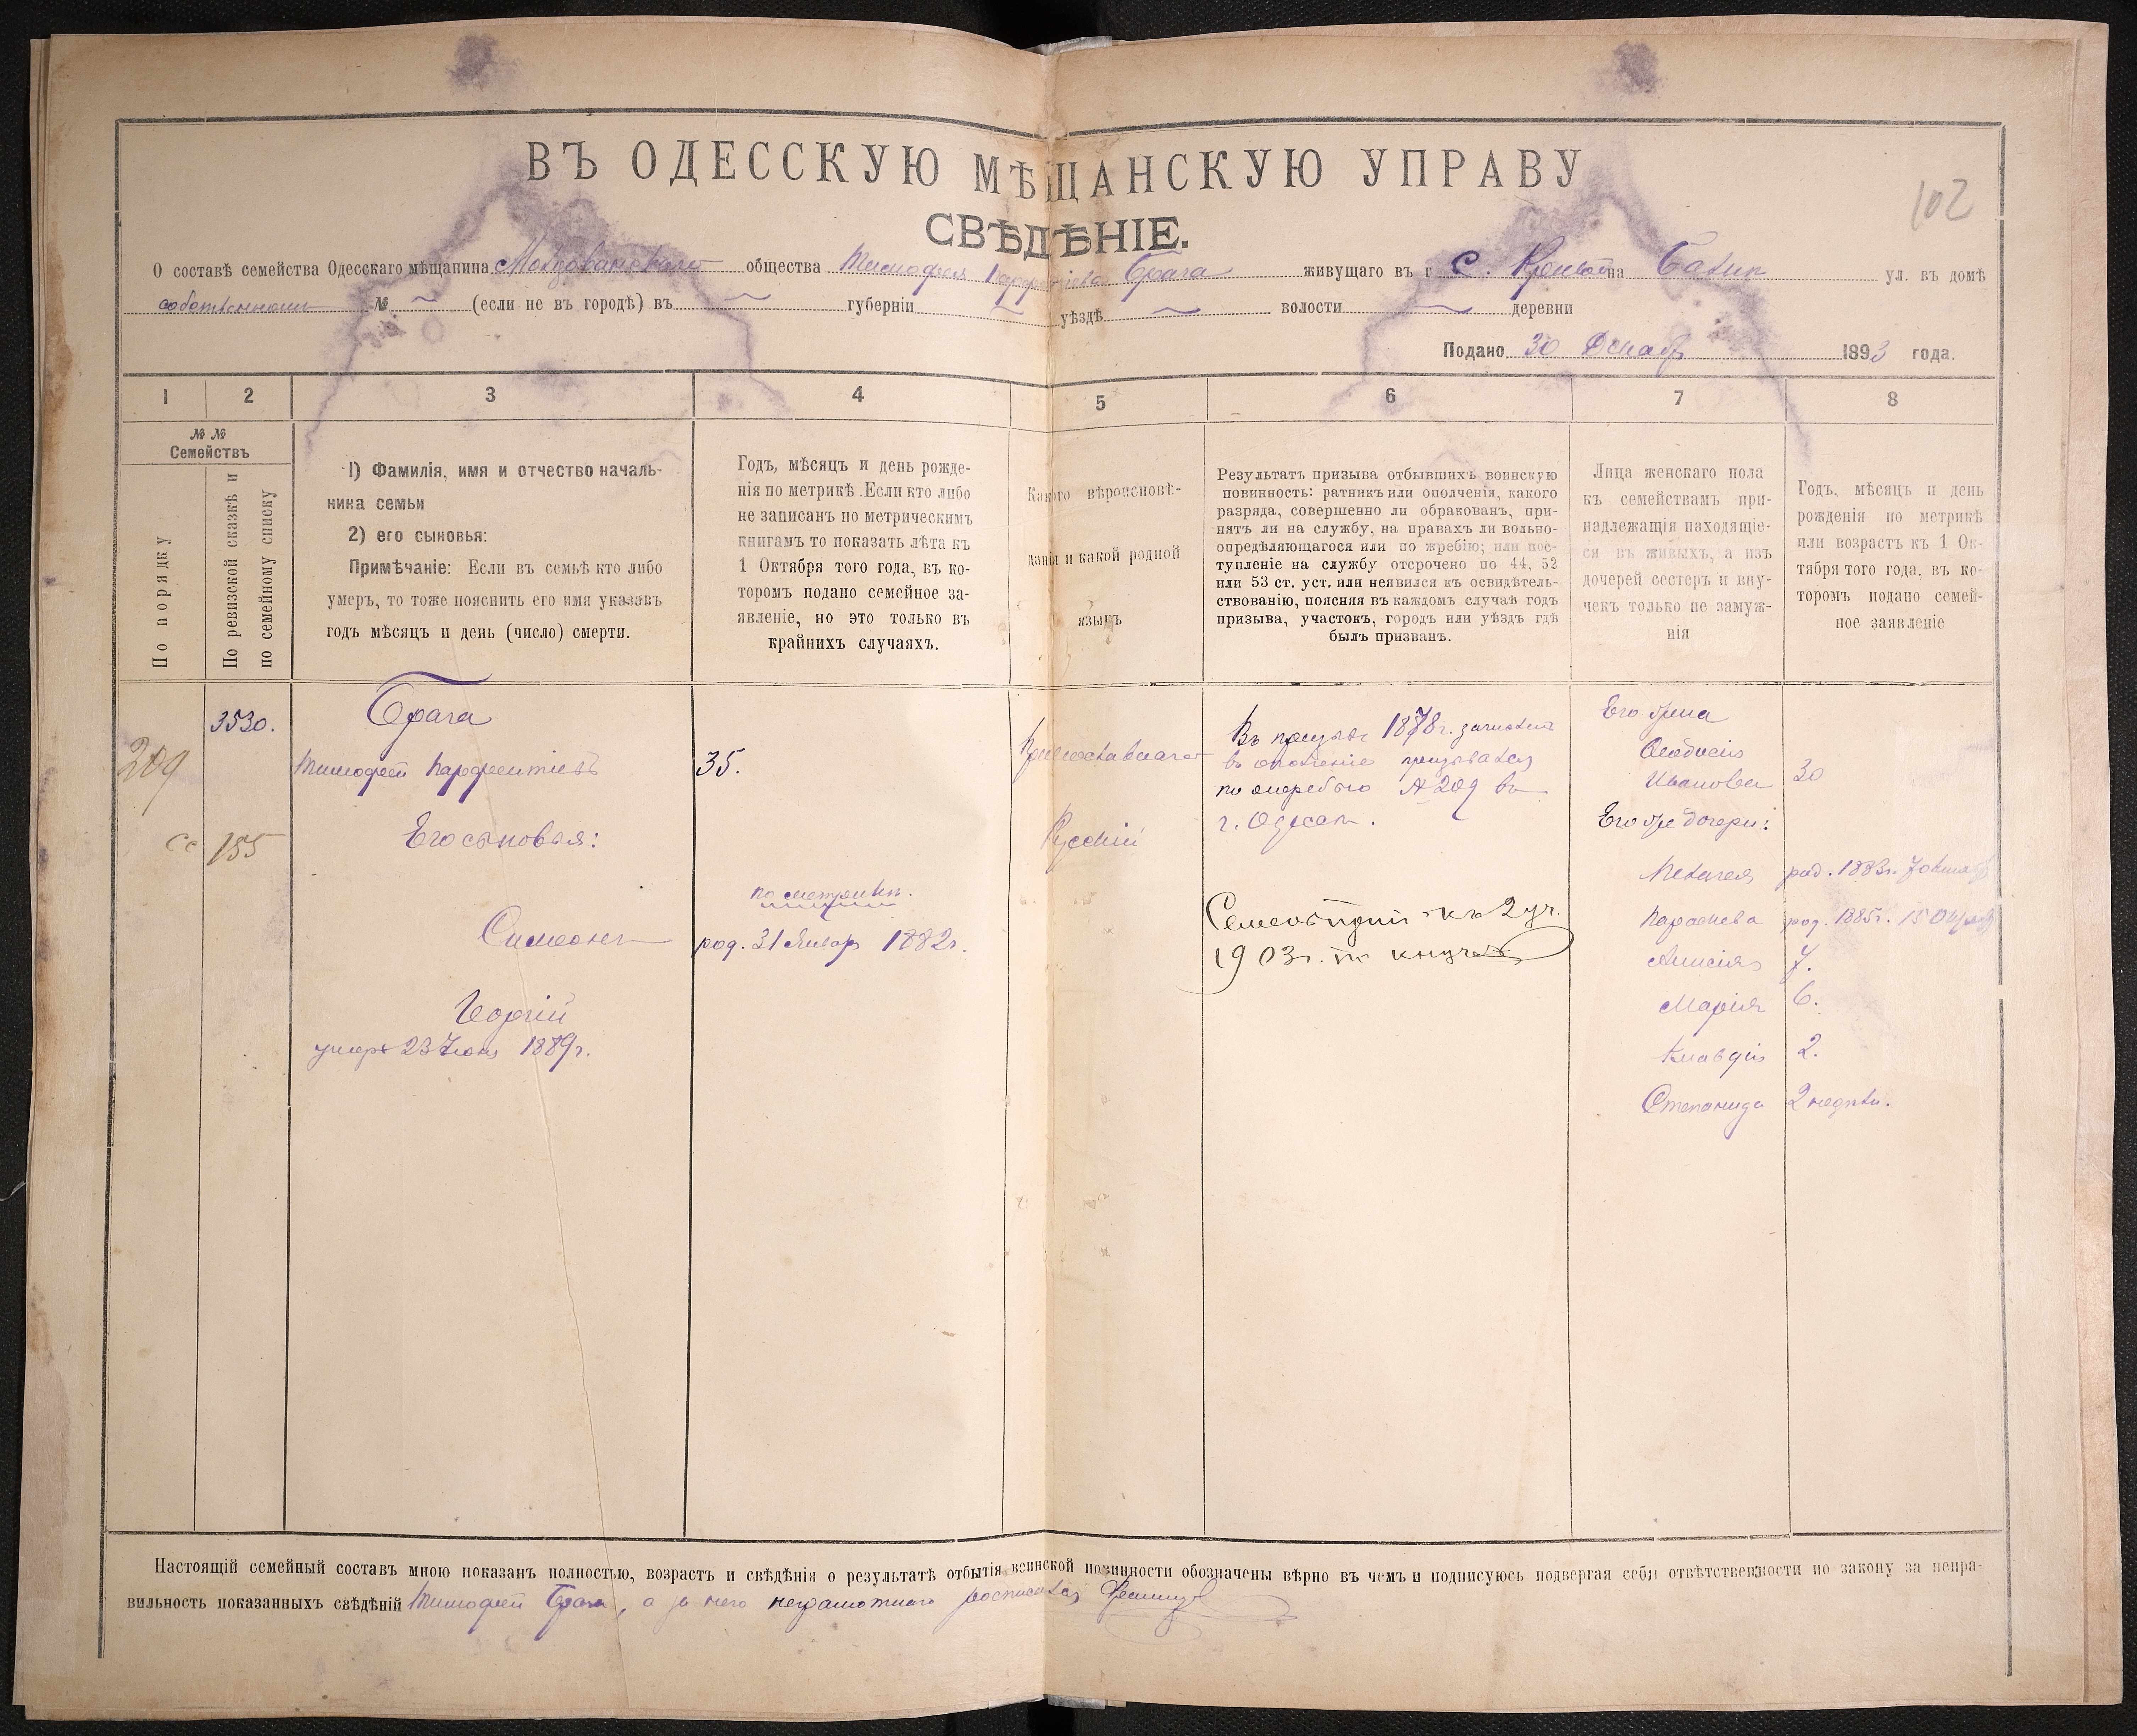 102
ВЪ ОДЕССКУЮ МѢЩАНСКУЮ УПРАВУ
СВѢДѢНІЕ.
О составѣ семейства Одесскаго мѣщанина Молдованскаго общества Тимофея Парфентіева Брага живущаго въ г с. на ул. въ домѣ
собственномъ № ~ (если не въ городѣ) въ ~ губерніи ~ уѣздѣ ~ волости ~ деревни
Подано 30 Декабр 1893 года.
1 2 3 4 5 6 7 8
№ №
Семействъ
По порядку
По ревизской сказкѣ и
по семейному списку
1) Фамилія, имя и отчество началь-
ника семьи
2) его сыновья:
Примѣчаніе: Если въ семьѣ кто либо
умеръ, то тоже пояснить его имя указавъ
годъ мѣсяцъ и день (число) смерти.
Годъ, мѣсяцъ и день рожде-
нія по метрикѣ. Если кто либо
не записанъ по метрическимъ
книгамъ то показать лѣта къ
1 Октября того года, въ ко-
торомъ подано семейное за-
явленіе, но это только въ
крайнихъ случаяхъ.
Какого вѣроисповѣ-
данія и какой родной
языкъ
Результатъ призыва отбывшихъ воинскую
повинность: ратникъ или ополченія, какого
разряда, совершенно ли обракованъ, при-
нятъ ли на службу, на правахъ ли вольно-
опредѣляющагося или по жребію; или пос-
тупленіе на службу отсрочено по 44, 52
или 53 ст. уст. или неявился къ освидѣтель-
ствованію, поясняя въ каждомъ случаѣ годъ
призыва, участокъ, городъ или уѣздъ гдѣ
былъ призванъ.
Лица женскаго пола
къ семействамъ при-
надлежащія находящіе-
ся въ живыхъ, а изъ
дочерей сестеръ и вну-
чекъ только не замуж-
нія
Годъ, мѣсяцъ и день
рожденія по метрикѣ
или возрастъ къ 1 Ок-
тября того года, въ ко-
торомъ подано семей-
ное заявленіе
209
3530.
Брага
Тимофей Парфентіевъ
35.
Православнаго
Русскій
Въ призывъ 1878г. зачисленъ
въ ополченіе призывался
по жеребью № 209 въ
г. Одессѣ.
Его жена
Феодосія
Иванова 30
сс 155
Его сыновья:
по метрикѣ.
Симеонъ род. 31 Январ 1882г.
1903г.
Георгій
умеръ 23 Іюня 1889г.
Его же дочери:
Пелагея род. 1883г.
Параскева род. 1885г. 15
Анисія 7.
Марія 6.
Клавдія 2.
Степанида 2 недѣли.
Настоящій семейный составъ мною показанъ полностью, возрастъ и свѣдѣнія о результатѣ отбытія воинской повинности обозначены вѣрно въ чемъ и подписуюсь подвергая себя отвѣтственности по закону за непра-
вильность показанныхъ свѣдѣній Тимофей Брага, а за него неграмотнаго росписался